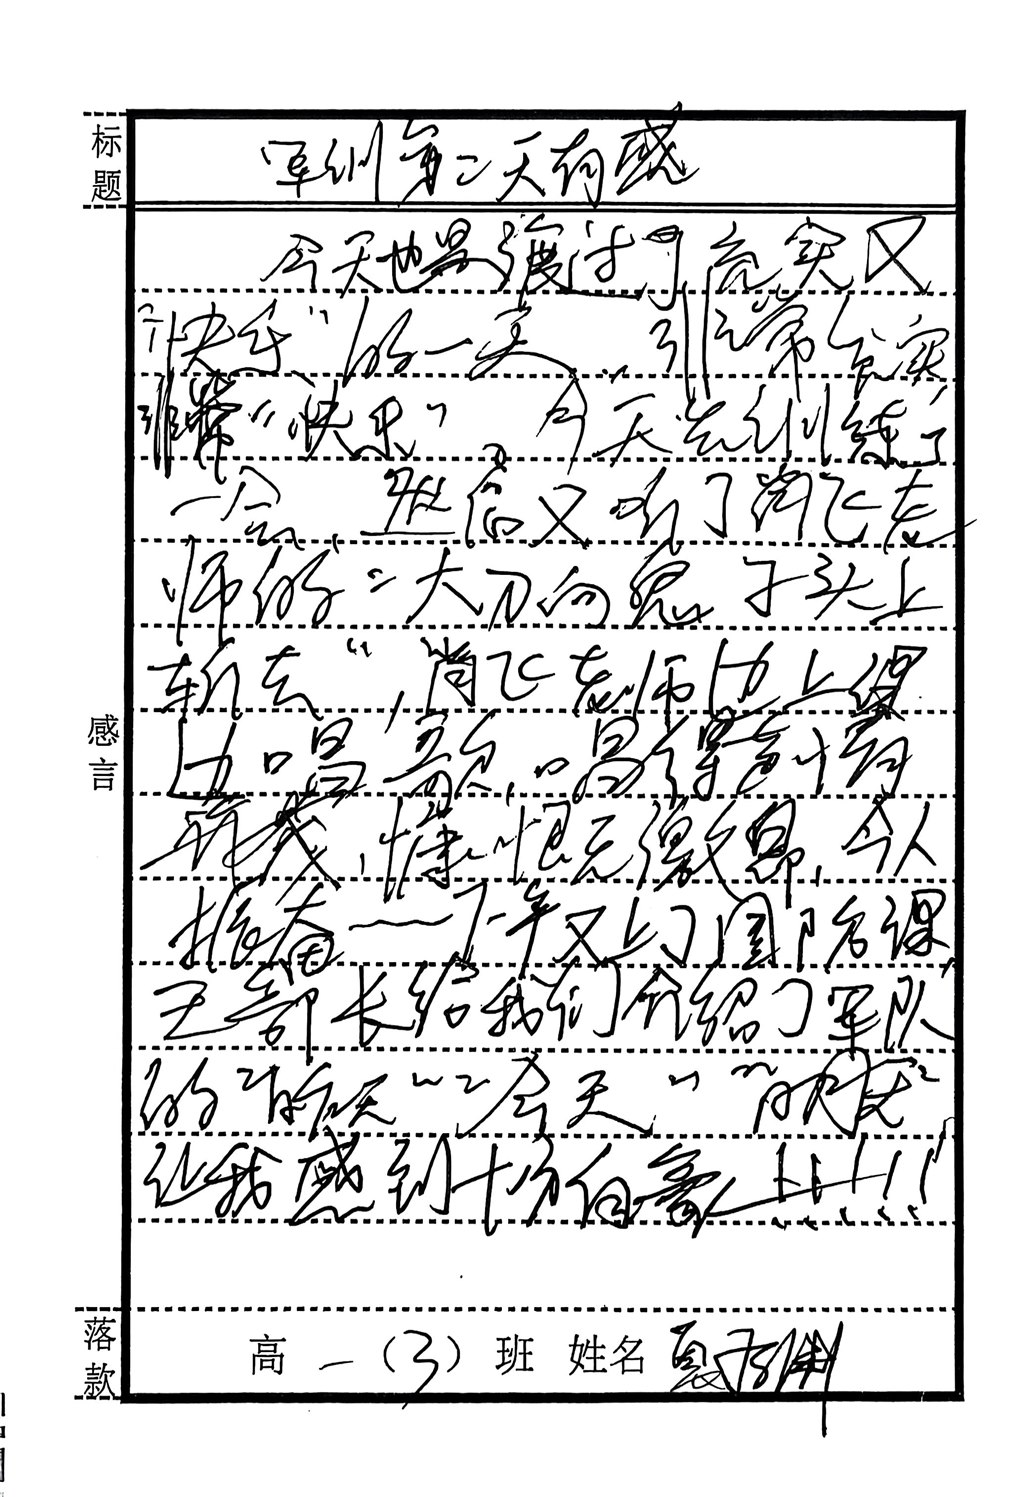 标题
军训第二天有感
今天也是渡过了充实又
“快乐”的一天,非常充实
非常“快乐”。今天先训练了
一会,然后又听了肖飞老
师的“大刀向鬼子头上
斩去”,肖飞老师边上课
边唱歌,唱得声情
并茂,慷慨激昂,令人
振奋——下午又上了国防课
王部长给我们介绍了军队
的“昨天”“今天”“明天”
让我感到十分自豪!!!!!!
感言
落款
高一(3)班 姓名